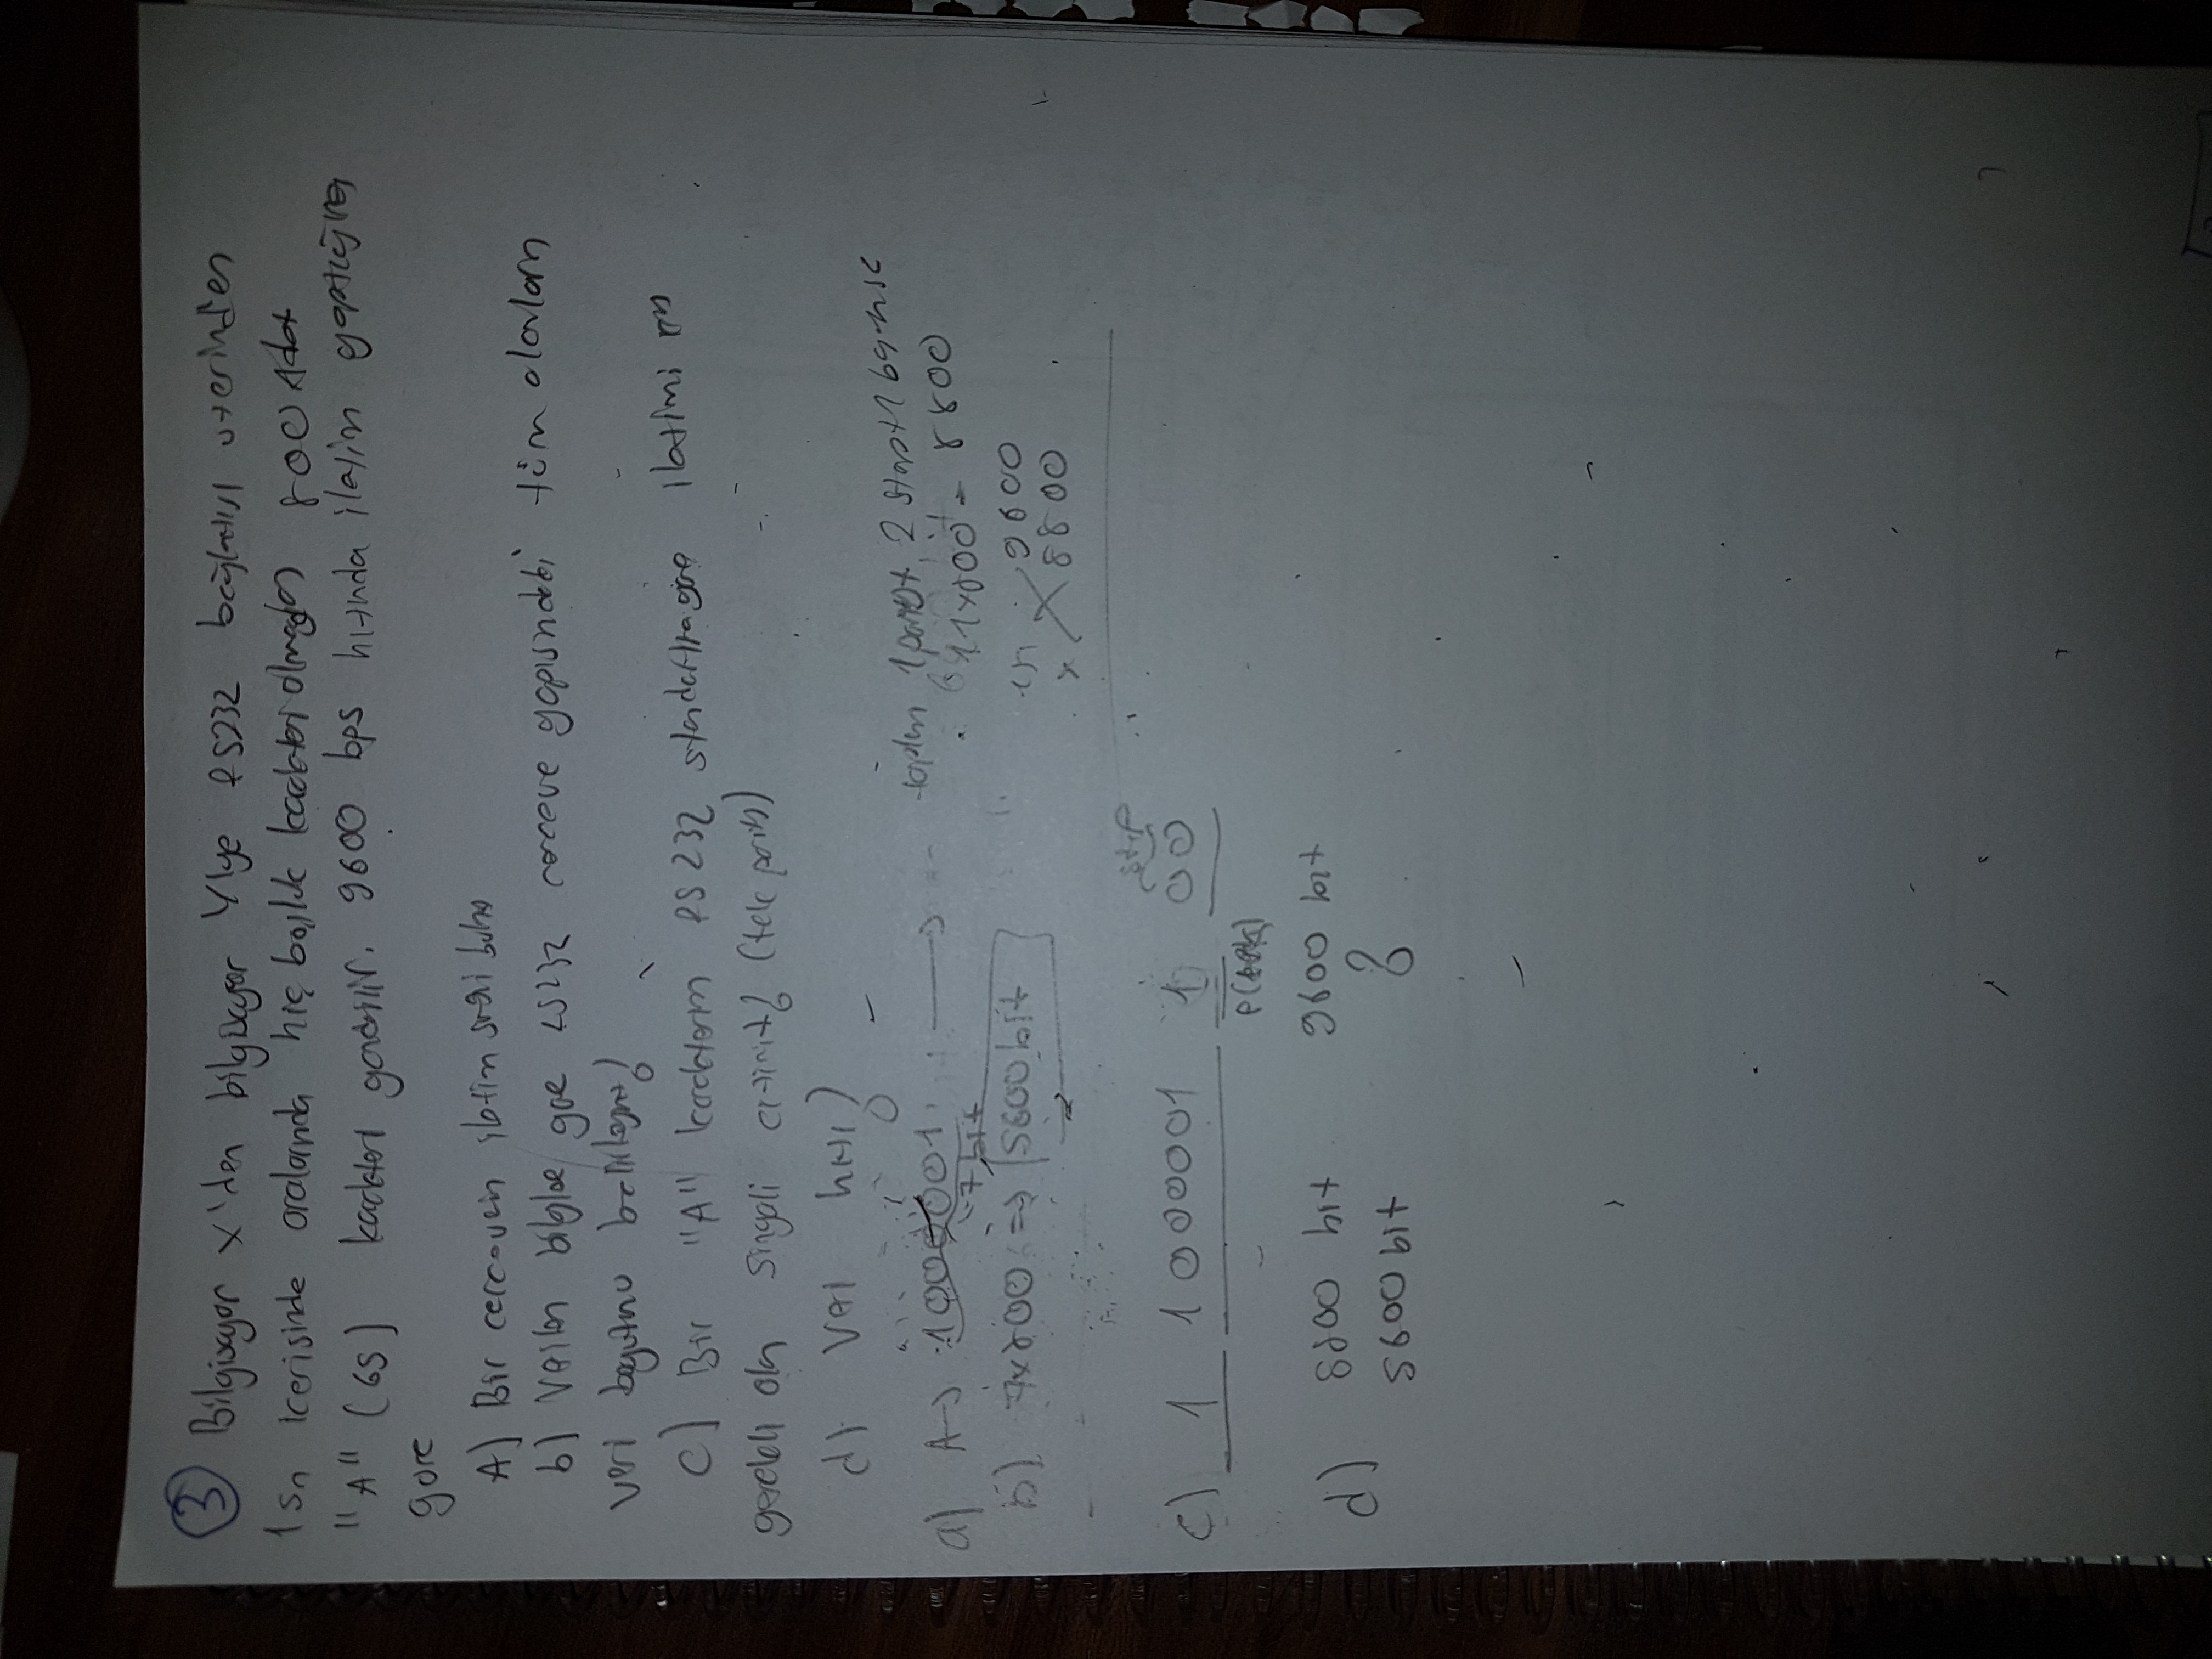 3 Bilgisayar X'den bilgisayar Y'ye RS232 bağlantısı üzerinden
1 sn içerisinde aralarında hiç boşluk karakteri olmadan 800 Adet
"A" (65) karakteri gönderilir. 9600 bps hızında iletim yaptığına
göre
A) Bir çercevein iletim
b) Verilen göre RS232 cerceve yapısındaki tüm alanların
veri boyutunu belirleyiniz?
C) Bir "A" karakterin RS232 standartına göre iletimi
gerekli olan singali çiziniz? (tek parity)
d) Veri hızı?
a) A→ 1000001 →
7 bit
toplam 1 parity, 2 stop
11x800 = 8800
b) 7x800 => 5600 bit
1sn 9600
x 8800
stop
c) 1 1000001 1 00
P(tek)
d) 8800 bit 9600 bit
5600 bit ?